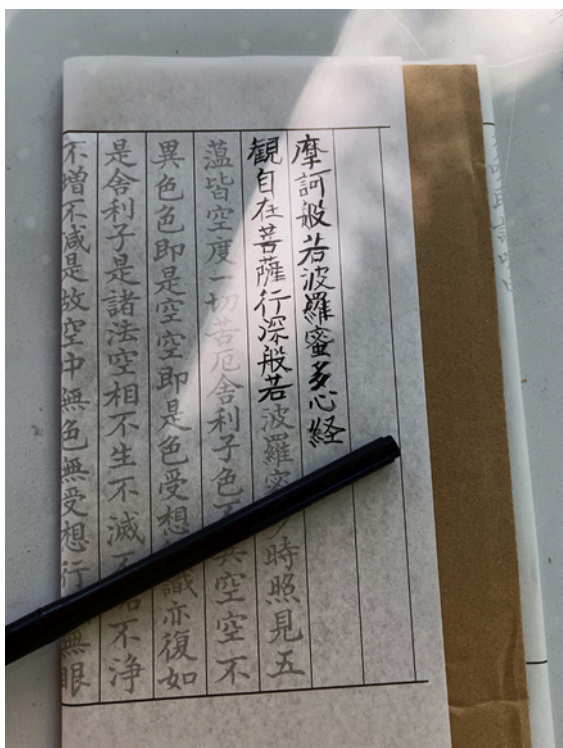 摩訶般若波羅蜜多心経
観自在菩薩行深般若波羅時照見五
薀皆空度一切苦厄舎利子色異空空不
異色色即是空空即是色受想識亦復如
是舎利子是諸法空相不生不滅不垢不浄
不増不減是故空中無色無受想行無眼